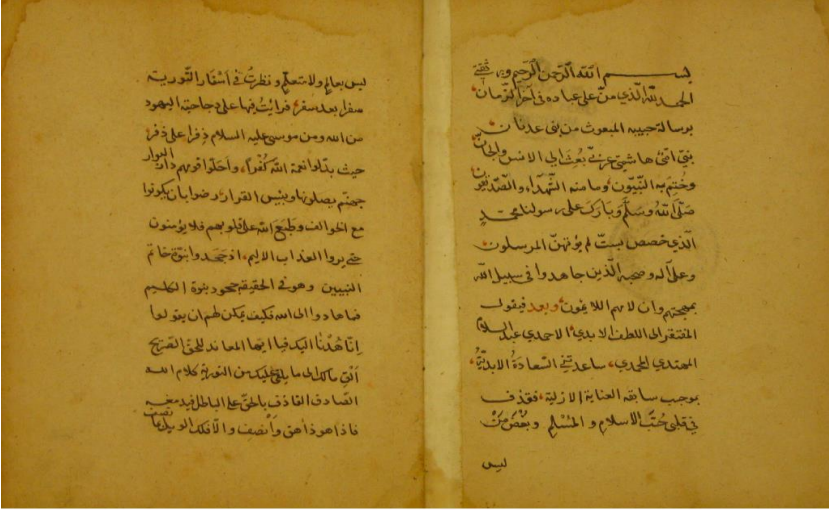 بسم الله الرحمن الرحيم وبه ثقتي
الحمد لله الذي منّ على عباده في آخر الزمان
برسالة حبيبه المبعوث من بني عدنان
نبي امّي هاشمي عربي بُعِثَ الى الانس والجان
وخُتِمَ به النبيّون وآمن به الشهداء والصدّيقون
صَلّى الله وَسَلّم وَبارك على رسولنا محمّد
الّذي خصص بستّ لم يؤتهنّ المرسلون
وعلى آله وصحبه الّذين جاهدوا في سبيل الله
بمهجتهم وان لامهم اللايمون وبعد فيقول
المفتقر الى اللطف الابدي الاحمدي عبد السلام
المهتدي المحمدي ساعدتني السّعادَةُ الابديّةُ
بوجب سابقه العناية الازلية فقذف
في قلبي حُبّ الاسلام و المُسْلِم وبُغْضُ مَنْ
ليس
ليس بعالم ولا متعلّم ونظرتُ في اَسْفار التّورية
سفرا بعد سفر فرأيتُ فيها على جاحديه اليهود
من الله ومن موسى عليه السلام زفرا على زفر
حيث بدّلوا نعمة الله كُفراً وَاحلّوا قومهم دار البوار
جهنّم يصلونها وبئيس القرار ورضوا بان يكونوا
مع الخوالف وطَبَعَ الله على قلوبهم فلا يؤمنون
حتى يروا العذاب الاليم اذ جَحدوا نبوّة خاتم
النبيين وهو في الحقيقه جحود بنوة الكليم
فما هادوا الى الله فكيف يمكن لهم ان يقولوا
اِنّا هُدْنا اليك فيا ايّها المعاند للحق الصّريح
اَلْقِ مالك الى ما يلقى عليك من التورية كلام الله
الصّادق القاذف بالحقّ على الباطل فيدمغه
فاذا هو ذاهق وأنصف والّا فلك الويل مما تصف